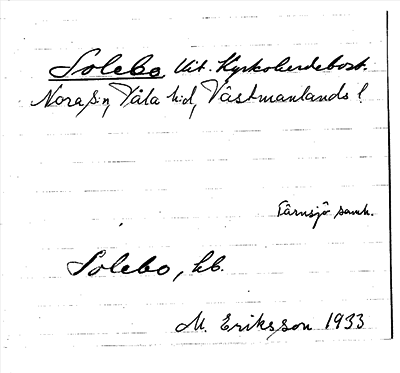 Solebo, Kit. Kyrkoherdebost.
Nora sn, Våla hd, Västmanlands l.
Tärnsjö samh.
Solebo, hb.
M. Eriksson 1933